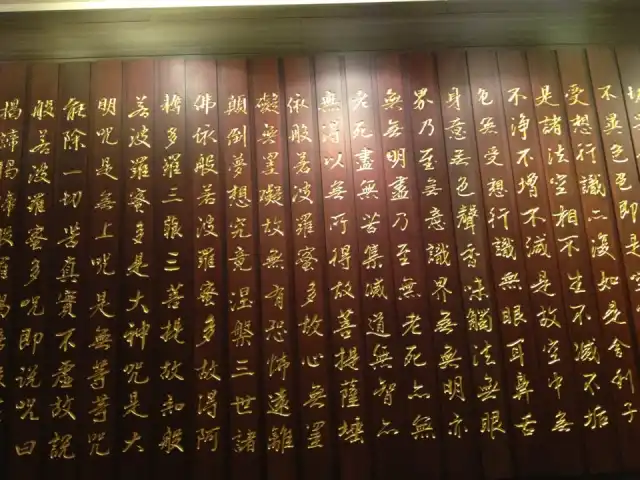 不異色色即是空
受想行識亦復如是舍利子
是諸法空相不生不滅不垢
不淨不增不減是故空中無
色無受想行識無眼耳鼻舌
身意無色聲香味觸法無眼
界乃至無意識界無無明亦
無無明盡乃至無老死亦無
老死盡無苦集滅道無智亦
無得以無所得故菩提薩埵
依般若波羅蜜多故心無罣
礙無罣礙故無有恐怖遠離
顛倒夢想究竟涅槃三世諸
佛依般若波羅蜜多故得阿
耨多羅三藐三菩提故知般
若波羅蜜多是大神咒是大
明咒是無上咒是無等等咒
能除一切苦真實不虛故說
般若波羅蜜多咒即說咒曰
揭諦揭諦般羅揭